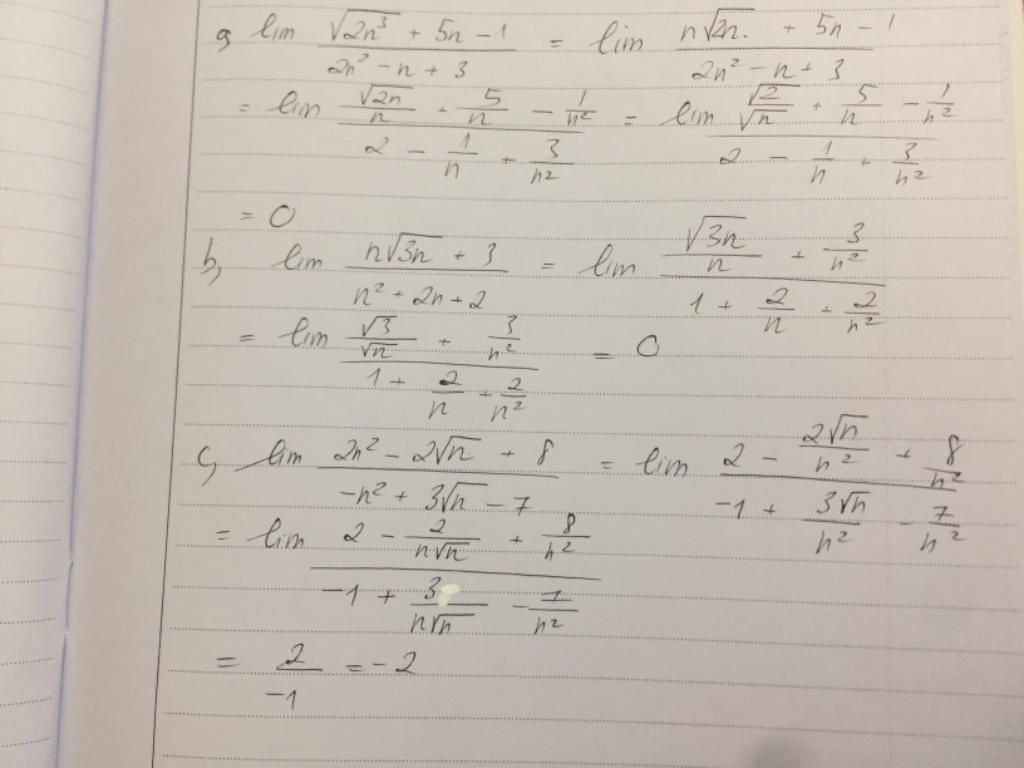 a, lim (√(2n³) + 5n - 1)/(2n² - n + 3) = lim (n√(2n) + 5n - 1)/(2n² - n + 3)
= lim (√(2n)/n + 5/n - 1/n²)/(2 - 1/n + 3/n²) = lim (√2/√n + 5/n - 1/n²)/(2 - 1/n + 3/n²)
= 0
b, lim (n√(3n) + 3)/(n² + 2n + 2) = lim (√(3n)/n + 3/n²)/(1 + 2/n + 2/n²)
= lim (√3/√n + 3/n²)/(1 + 2/n + 2/n²) = 0
c, lim (2n² - 2√n + 8)/(-n² + 3√n - 7) = lim (2 - 2√n/n² + 8/n²)/(-1 + 3√n/n² - 7/n²)
= lim (2 - 2/(n√n) + 8/n²)/(-1 + 3/(n√n) - 7/n²)
= 2/-1 = -2